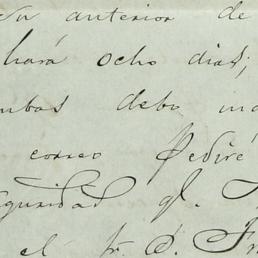 su anterior de
hará ocho dias;
mbas debo
correo Pediré
guridad ql.
el Sr. D. Fr